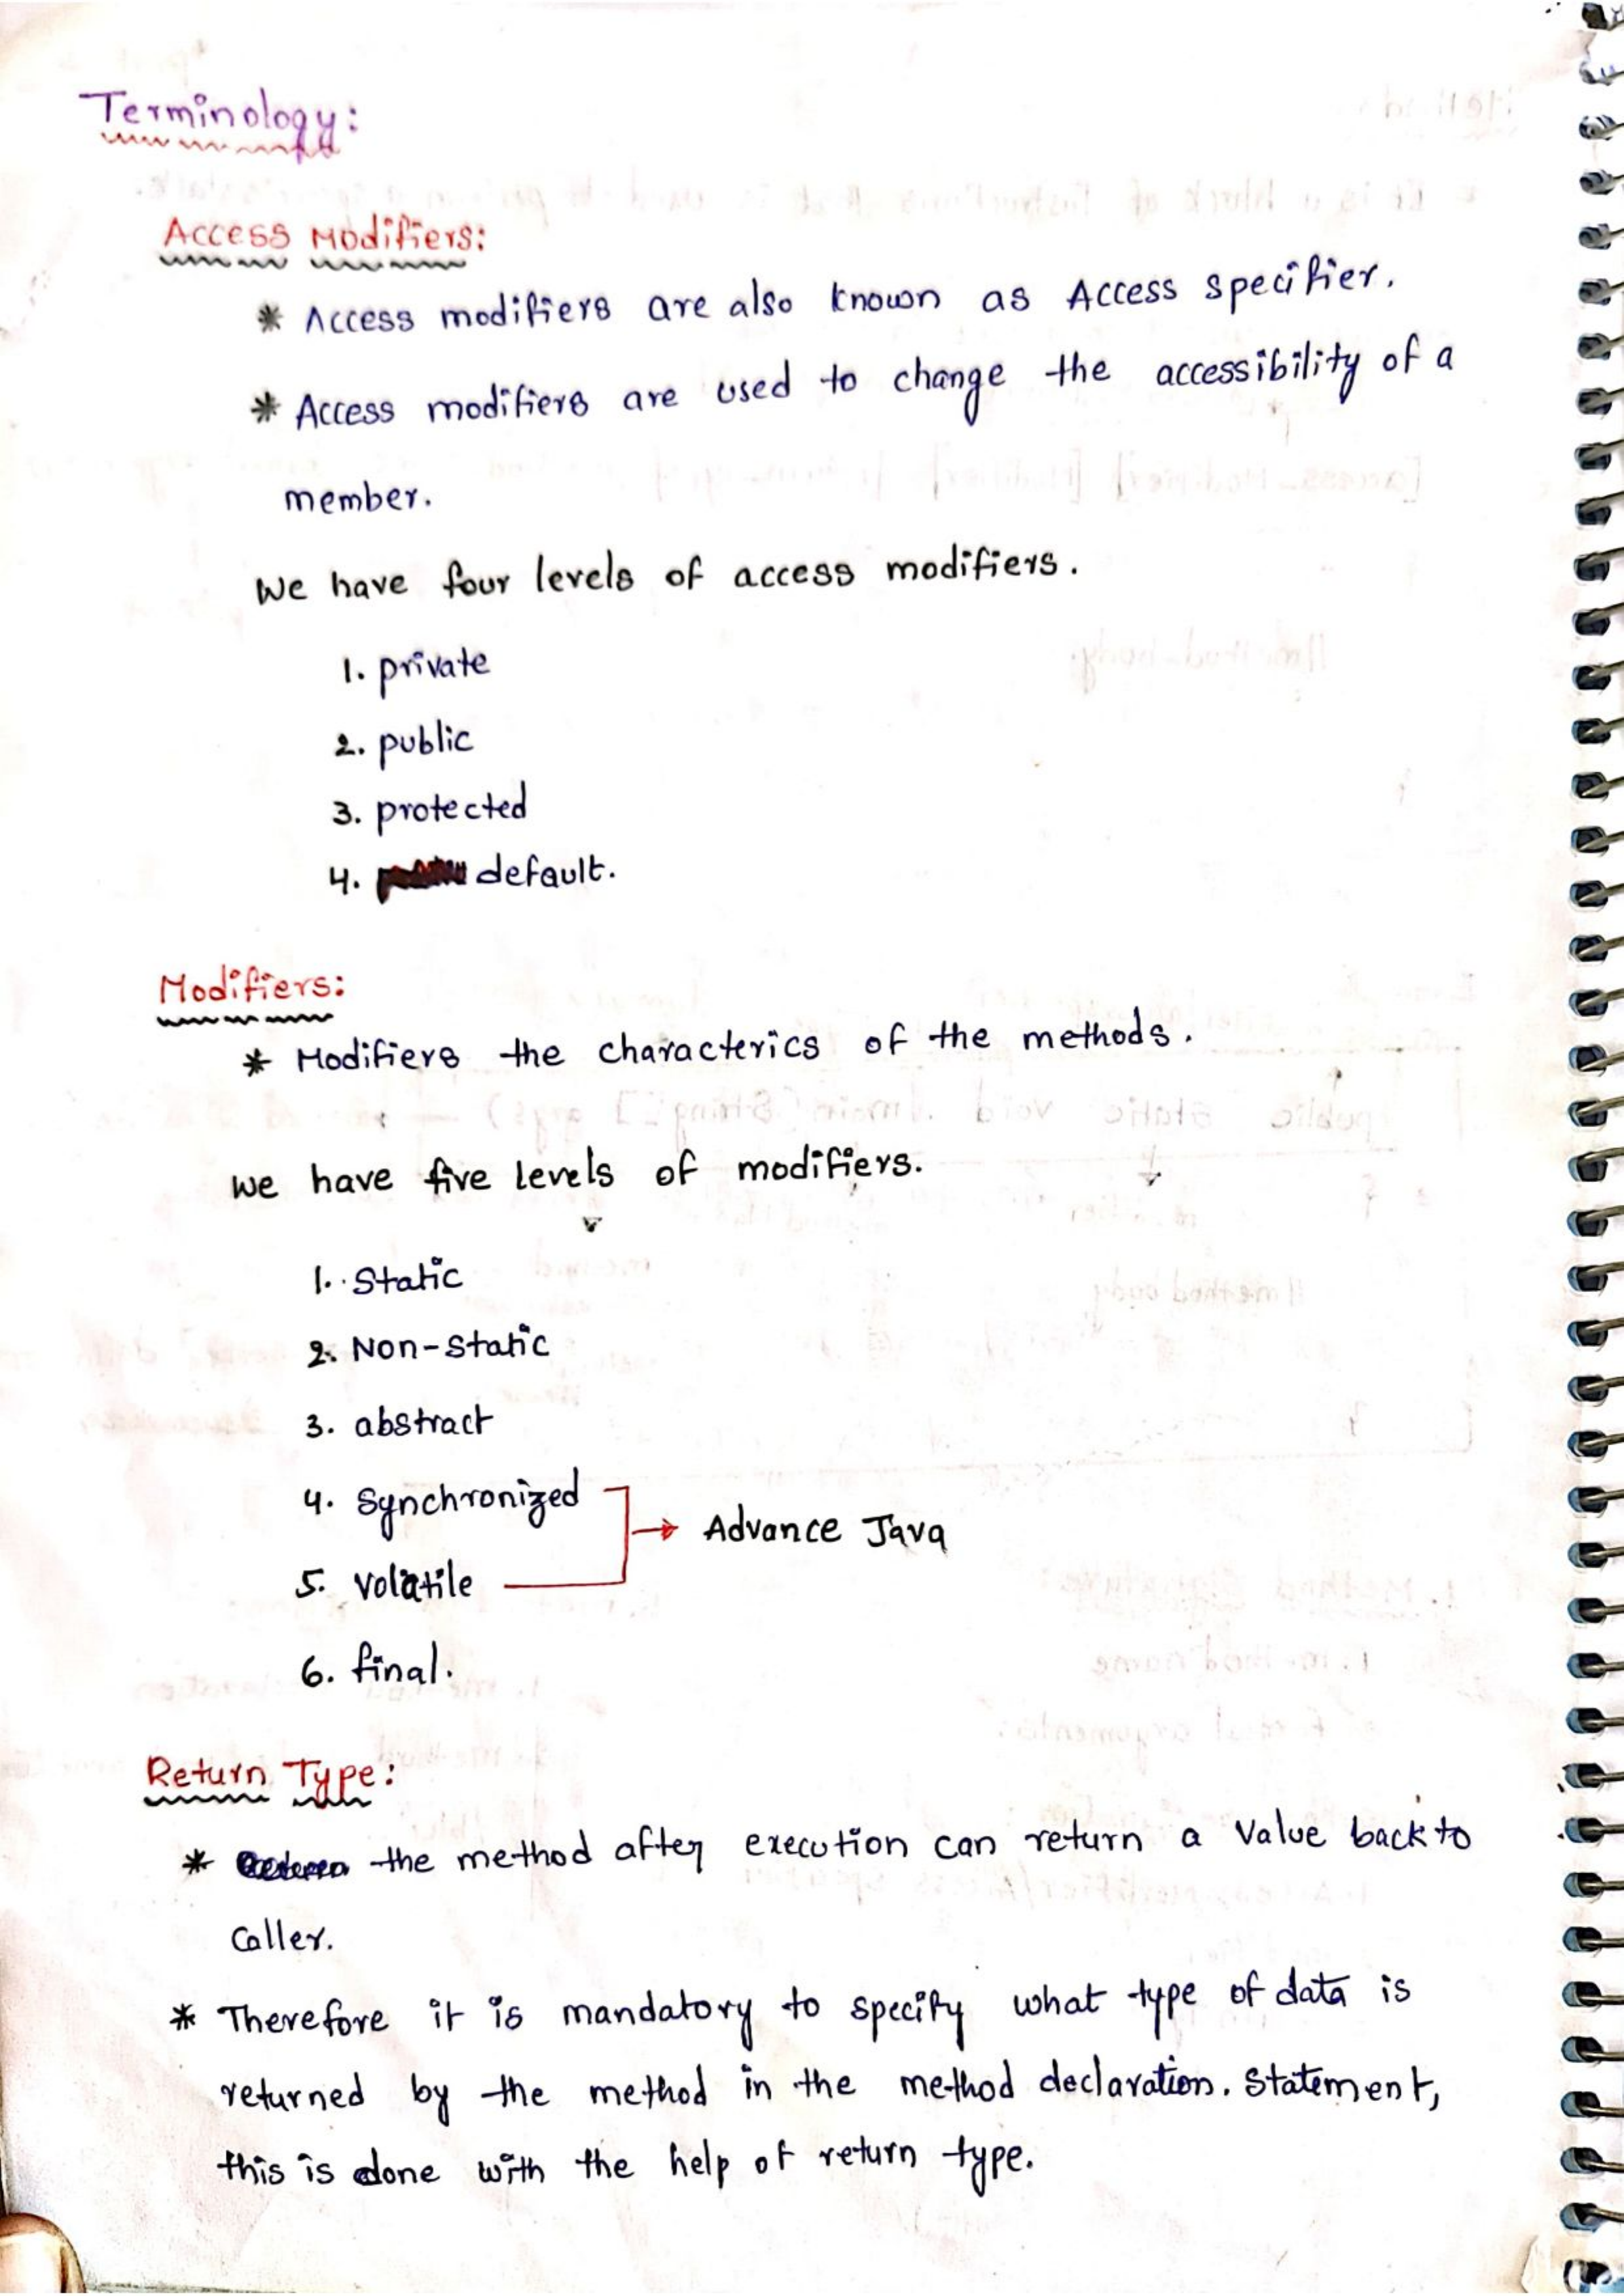 Terminology:
Access Modifiers:
* Access modifiers are also known as Access specifier.
* Access modifiers are used to change the accessibility of a
member.
We have four levels of access modifiers.
1. private
2. public
3. protected
4. default.
Modifiers:
* Modifiers the characterics of the methods.
we have five levels of modifiers.
1. Static
2. Non-static
3. abstract
4. Synchronized
→ Advance Java
5. volatile
6. final.
Return Type:
* the method after execution can return a value back to
caller.
* Therefore it is mandatory to specify what type of data is
returned by the method in the method declaration. statement,
this is done with the help of return type.